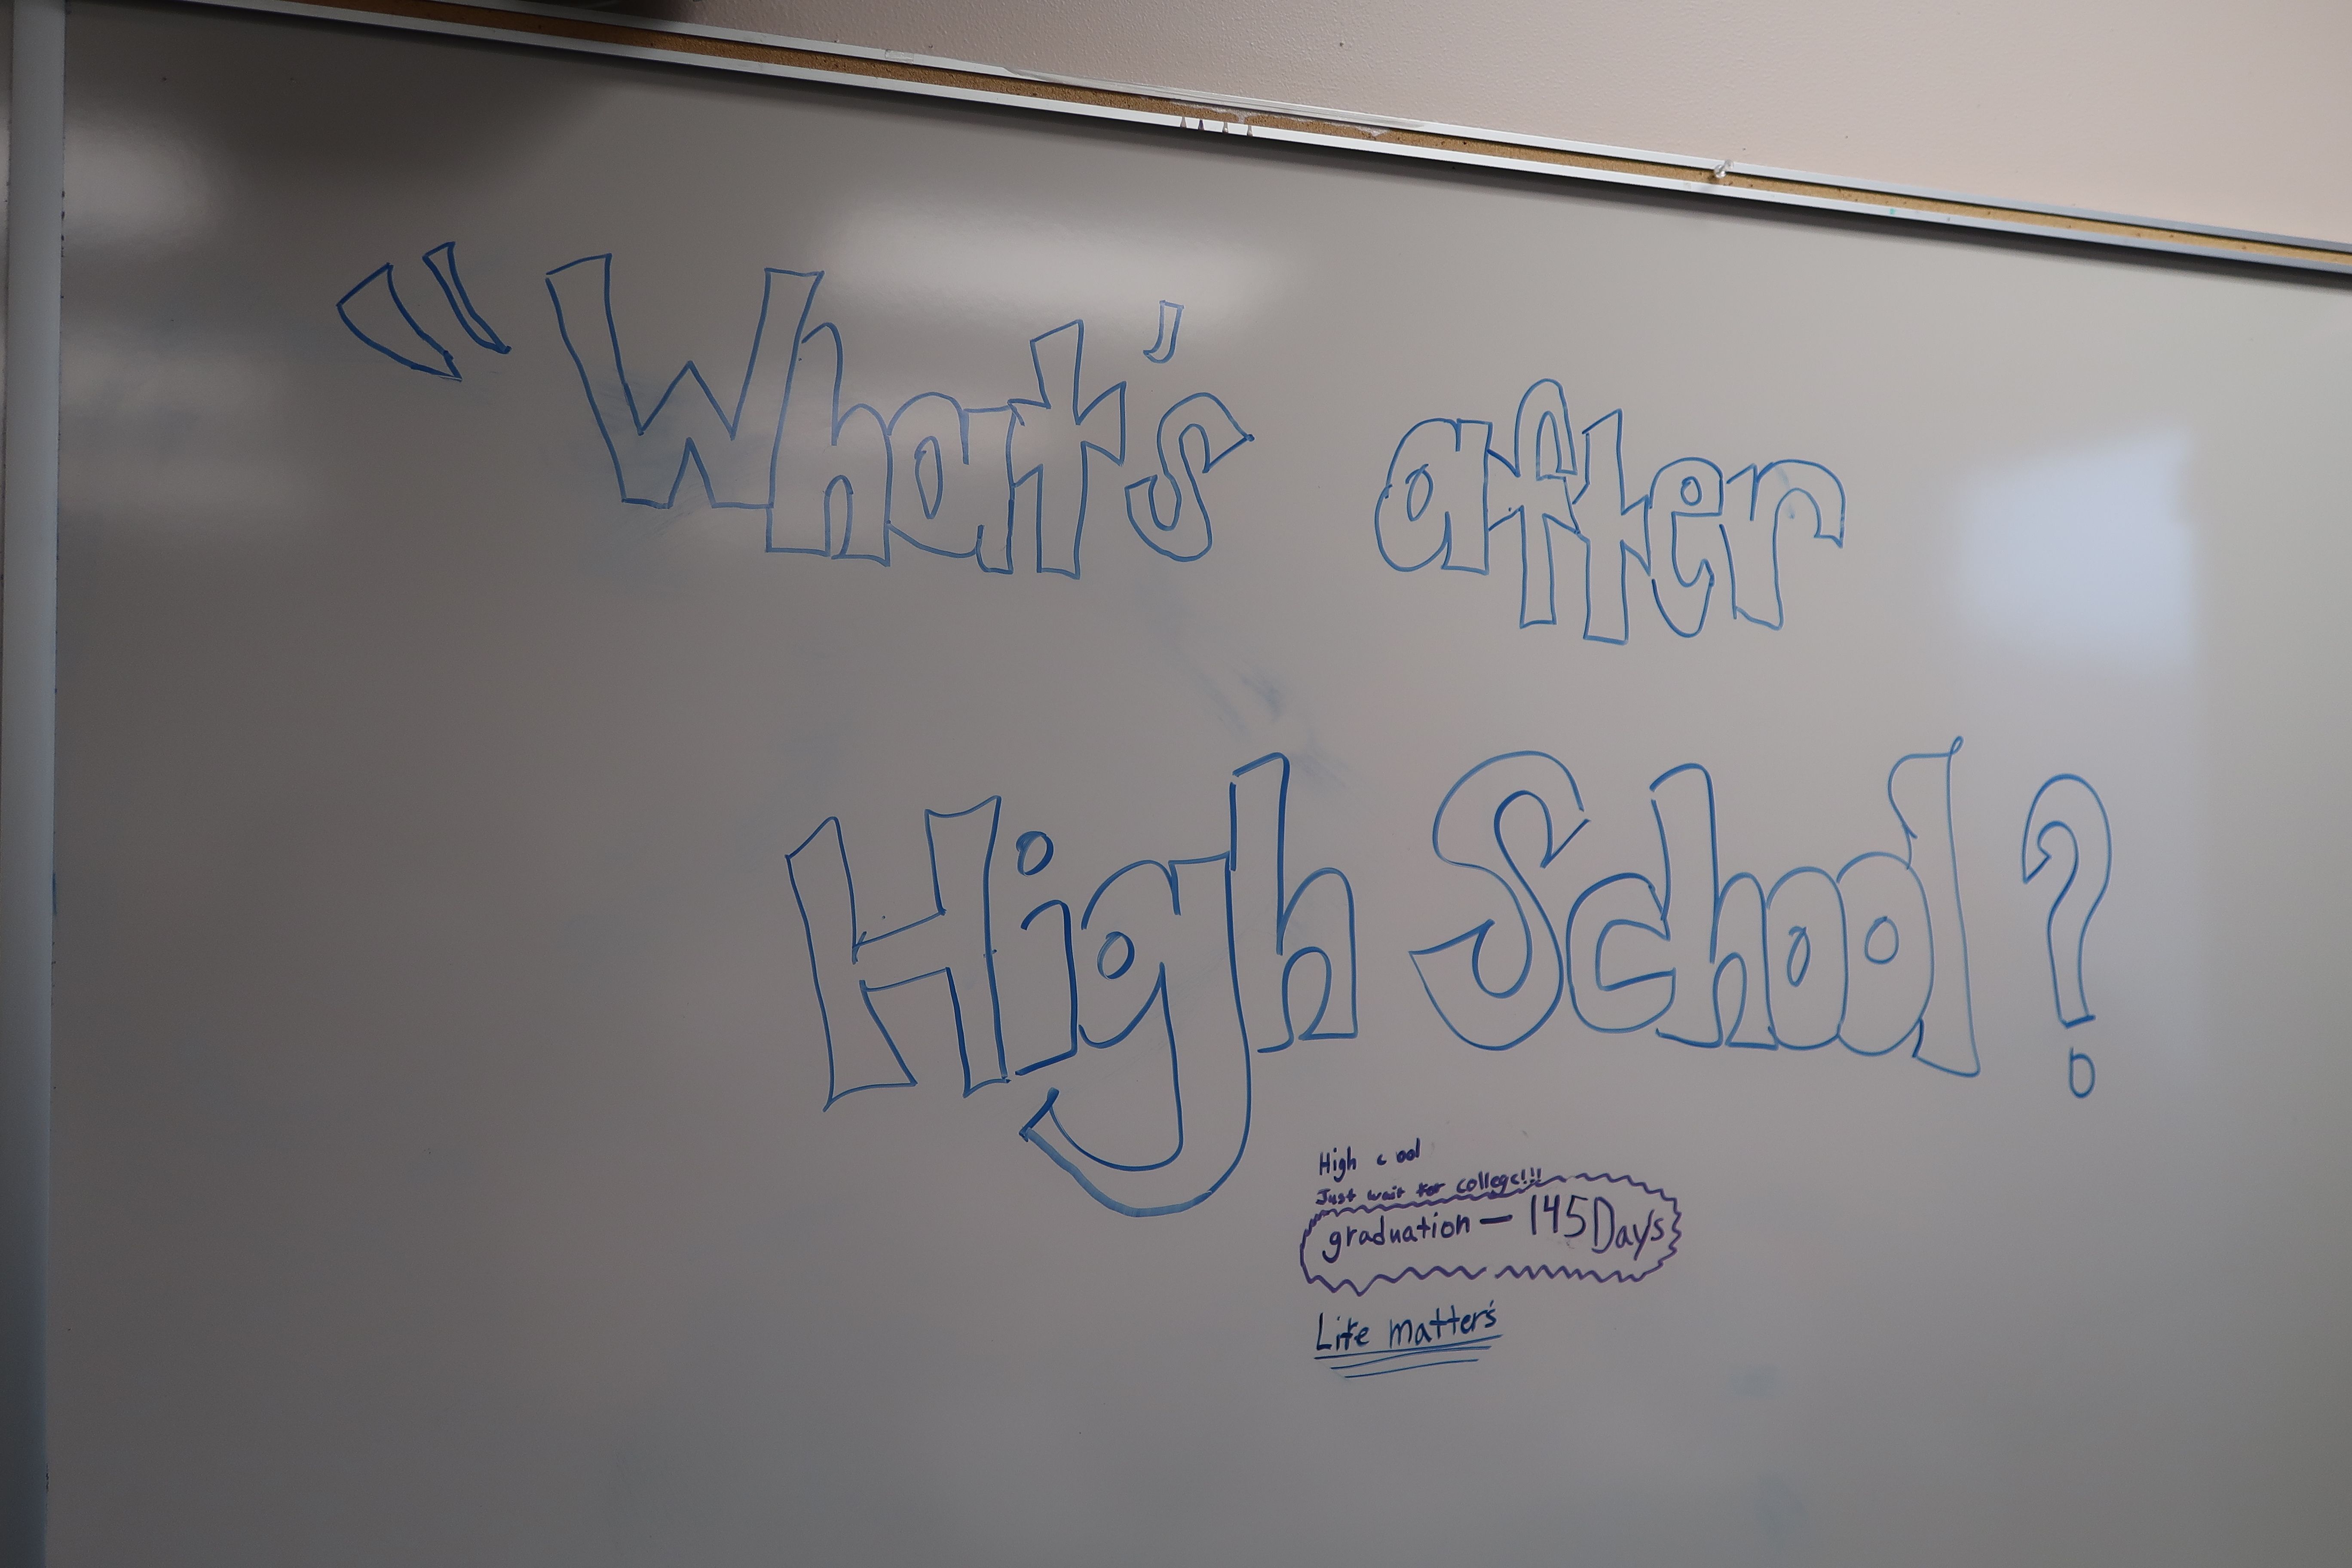 "What's after
High School?
High c ool
Just wait for college!!!
graduation — 145 Days
Life matter's